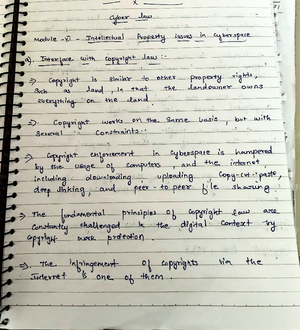 x
Cyber law
Module - VI - Intellectual Property Issues in Cyberspace
a). Interface with copyright law :-
=> Copyright is similar to other property rights,
such as land, in that the landowner owns
everything on the land.
=> Copyright works on the same basis, but with
several constraints.
=> Copyright enforcement in cyberspace is hampered
by the usage of computers and the internet
including downloading uploading copy-cut-paste,
deep linking, and peer-to-peer file sharing.
=> The fundamental principles of copyright law are
constantly challenged in the digital context by
copyright work protection.
=> The infringement of copyrights via the
Internet is one of them.